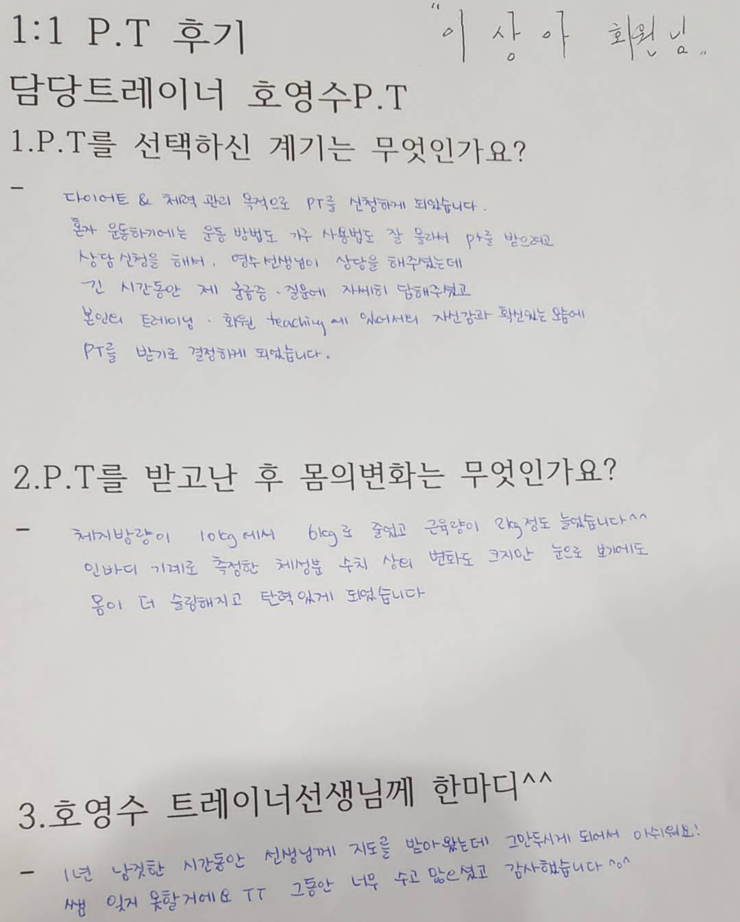 1:1 P.T 후기
"이상아 회원님"
담당트레이너 호영수P.T
1.P.T를 선택하신 계기는 무엇인가요?
- 다이어트 & 체력 관리 목적으로 PT를 신청하게 되었습니다.
혼자 운동하기에는 운동 방법도 기구 사용법도 잘 몰라서 pt를 받으려고
상담신청을 해서, 영수선생님이 상담을 해주셨는데
긴 시간동안 제 궁금증·질문에 자세히 답해주셨고
본인의 트레이닝·회원 teaching에 있어서의 자신감과 확신있는 모습에
PT를 받기로 결정하게 되었습니다.
2.P.T를 받고난 후 몸의변화는 무엇인가요?
- 체지방량이 10kg에서 6kg로 줄었고 근육량이 2kg정도 늘었습니다^^
인바디 기계로 측정한 체성분 수치 상의 변화도 크지만 눈으로 보기에도
몸이 더 슬림해지고 탄력있게 되었습니다
3.호영수 트레이너선생님께 한마디^^
- 1년 남짓한 시간동안 선생님께 지도를 받아왔는데 그만두시게 되어서 아쉬워요!
쌤 잊지 못할거에요 TT 그동안 너무 수고 많으셨고 감사했습니다 ^o^